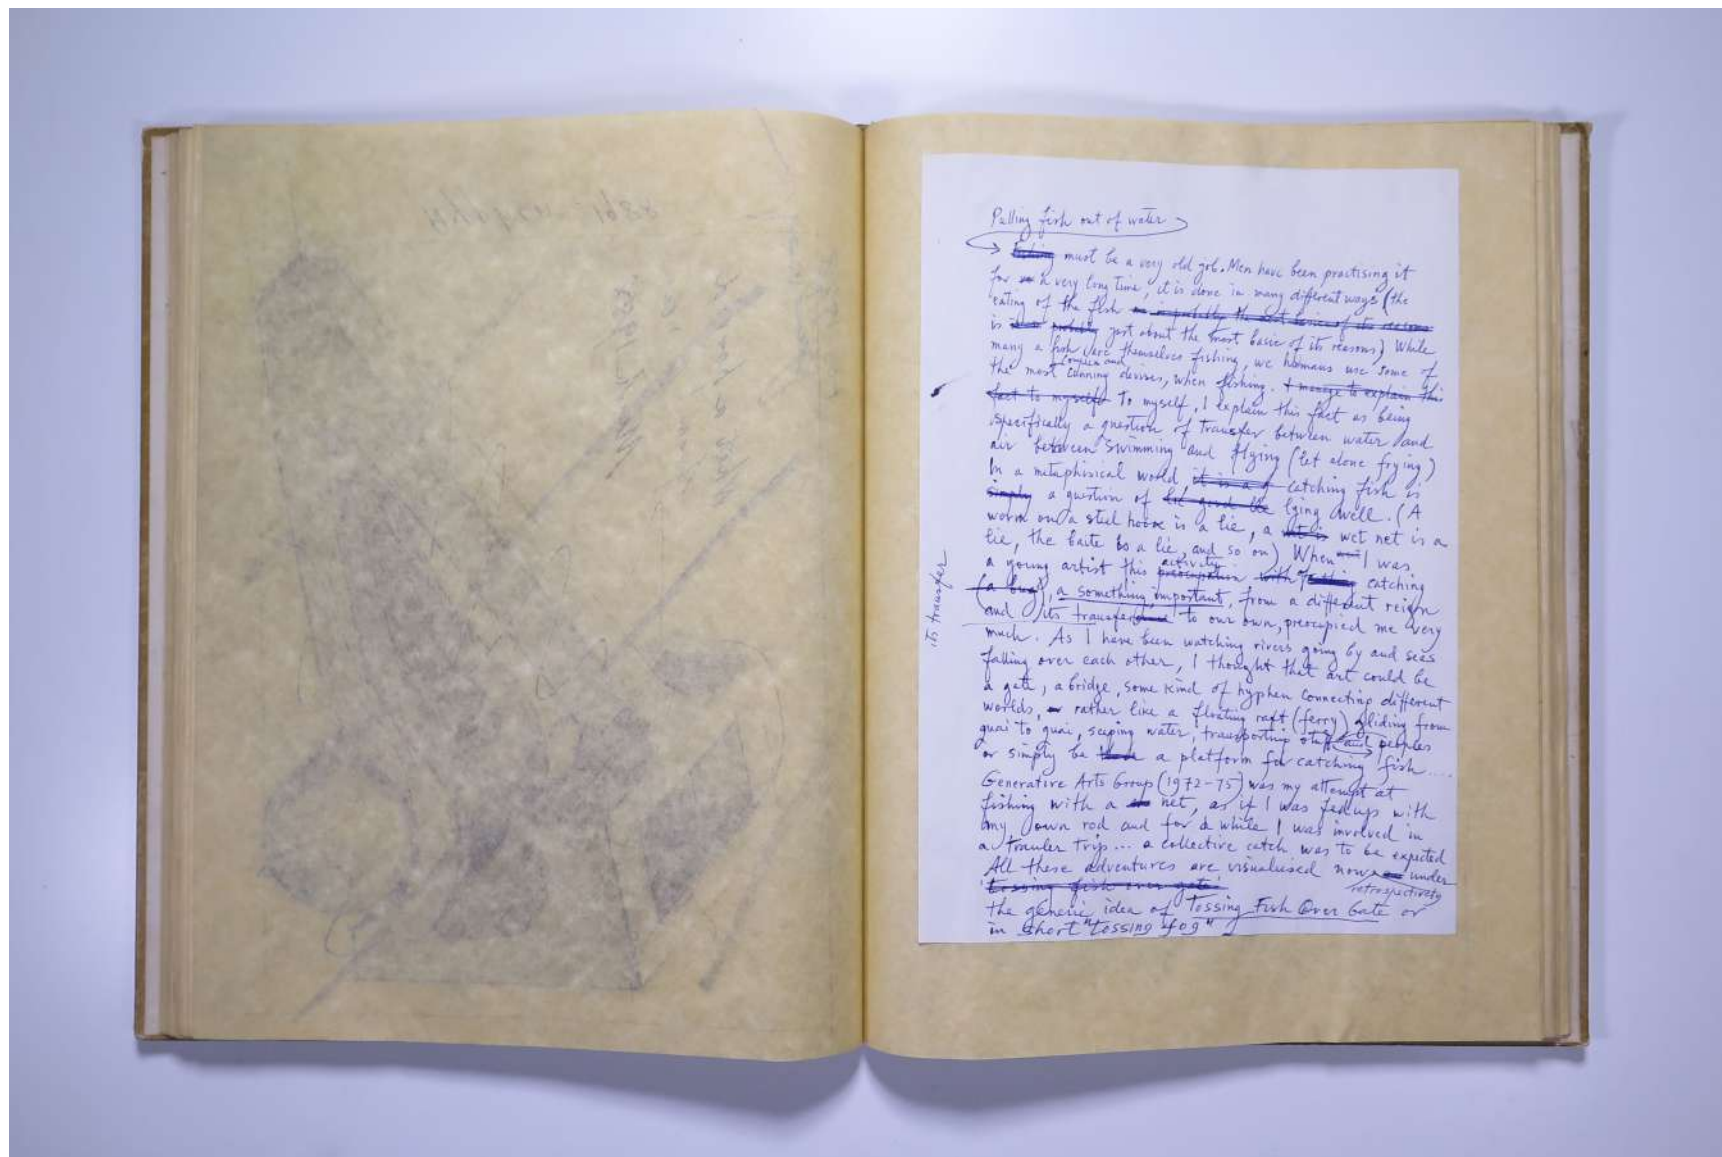 Pulling fish out of water
fishing must be a very old job. Men have been practising it
for a very long time, it is done in many different ways (the
eating of the fish is probably the most basic of its reasons
is probably just about the most basic of its reasons) While
many a fish are themselves fishing, we humans use some of
the most complex and cunning devises, when fishing. I manage to explain this
fact to myself To myself, I explain this fact as being
specifically a question of transfer between water and
air between swimming and flying (let alone frying)
In a metaphisical world, it is a catching fish is
simply a question of lying well. (A
worm on a steel hook is a lie, a wet net is a
lie, the baite is a lie, and so on) When I was
a young artist this preocupation activity with fishing catching
(a bug), a something important, from a different reign
and its transfer to our own, preocupied me very
its transfer
much. As I have been watching rivers going by and sees
falling over each other, I thought that art could be
a gate, a bridge, some kind of hyphen connecting different
worlds, rather like a floating raft (ferry) gliding from
quai to quai, seeping water, transporting stuff and peoples
or simply be a platform for catching fish....
Generative Arts Group (1972-75) was my attempt at
fishing with a net, as if I was fed up with
my own rod and for a while I was involved in
a trauler trip... a collective catch was to be expected
All these adventures are visualised now under
retrospectively
"tossing fish over gate"
the generic idea of Tossing Fish Over Gate or
in short "tossing fog"